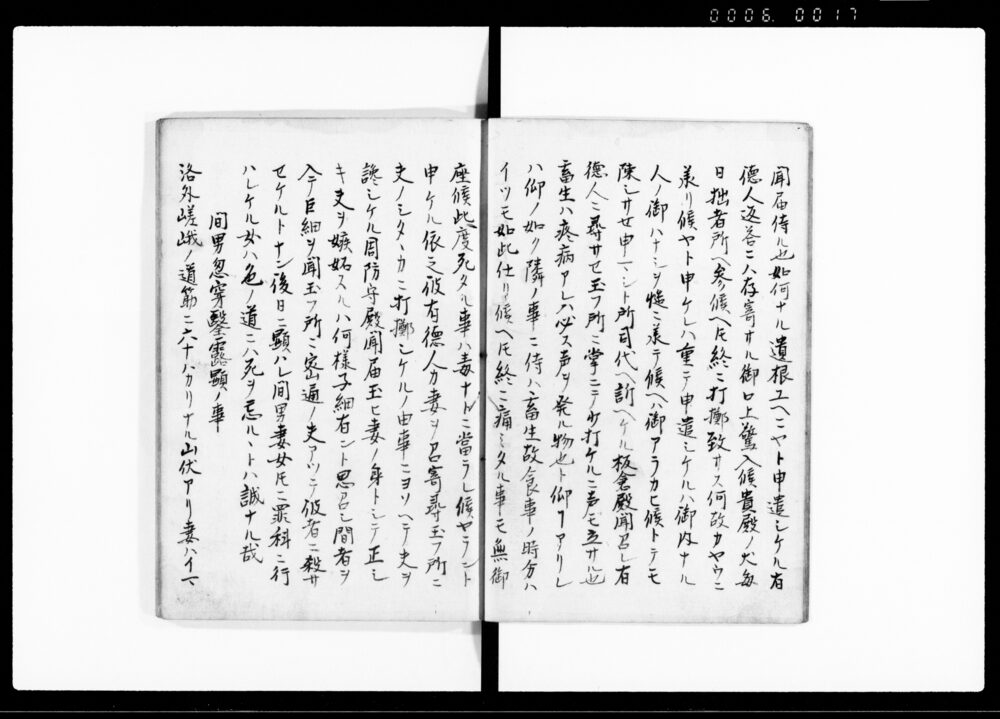 0006. 0017
聞届侍ル也如何ナル遺根ユヘニヤト申遣シケル有
徳人返答ニハ存寄サル御口上驚入候貴殿ノ犬毎
日拙者所ヘ参候ヘ𪜈終ニ打擲致サス何故カヤウニ
承リ候ヤト申ケレハ重テ申遣シケルハ御内ナル
人ノ御ハナシヲ慥ニ承テ候ヘハ御アラカヒ候トテモ
陳シサセ申マシト所司代ヘ訴ヘケル板倉殿聞召レ有
徳人ニ尋サセ玉フ所ニ掌ニテ少打ケルニ声モ立サル也
畜生ハ疼病アレハ必ス声ヲ発ル物也ト仰アリシ
ハ仰ノ如ク隣ノ事ニ侍ハ畜生故食事ノ時分ハ
イツモ如此仕リ候ヘ𪜈終ニ痛ミタル事モ無御
座候此度死タル事ハ毒ナトニ當ラレ候ヤラント
申ケル依之彼有徳人カ妻ヲ召寄尋玉フ所ニ
夫ノシタヽカニ打擲シケルノ由事ニヨソヘテ夫ヲ
讒シケル周防守殿聞届玉ヒ妻ノ身トシテ正シ
キ夫ヲ嫉妬スルハ何様子細有ント思召シ間者ヲ
入テ巨細ヲ聞玉フ所ニ密通ノ夫アツテ彼者ニ殺サ
セケルトナン後日ニ顕ハレ間男妻女𪜈ニ罪科ニ行
ハレケル女ハ色ノ道ニハ死ヲ忘ルヽトハ誠ナル哉
間男忽穿鑿露顕ノ事
洛外嵯峨ノ道筋ニ六十ハカリナル山伏アリ妻ハイマ